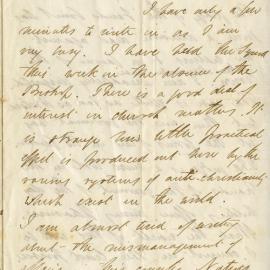 I have only a few
minutes to write in as I am
very busy. I have held the Synod
this week in the absence of the
Bishop. There is a good deal of
interest in church matters. It
is strange how little practical
effect is produced out here by the
various systems of anti-christianity
which exist in the world.
I am almost tired of writing
about the mismanagement of
this country Natives